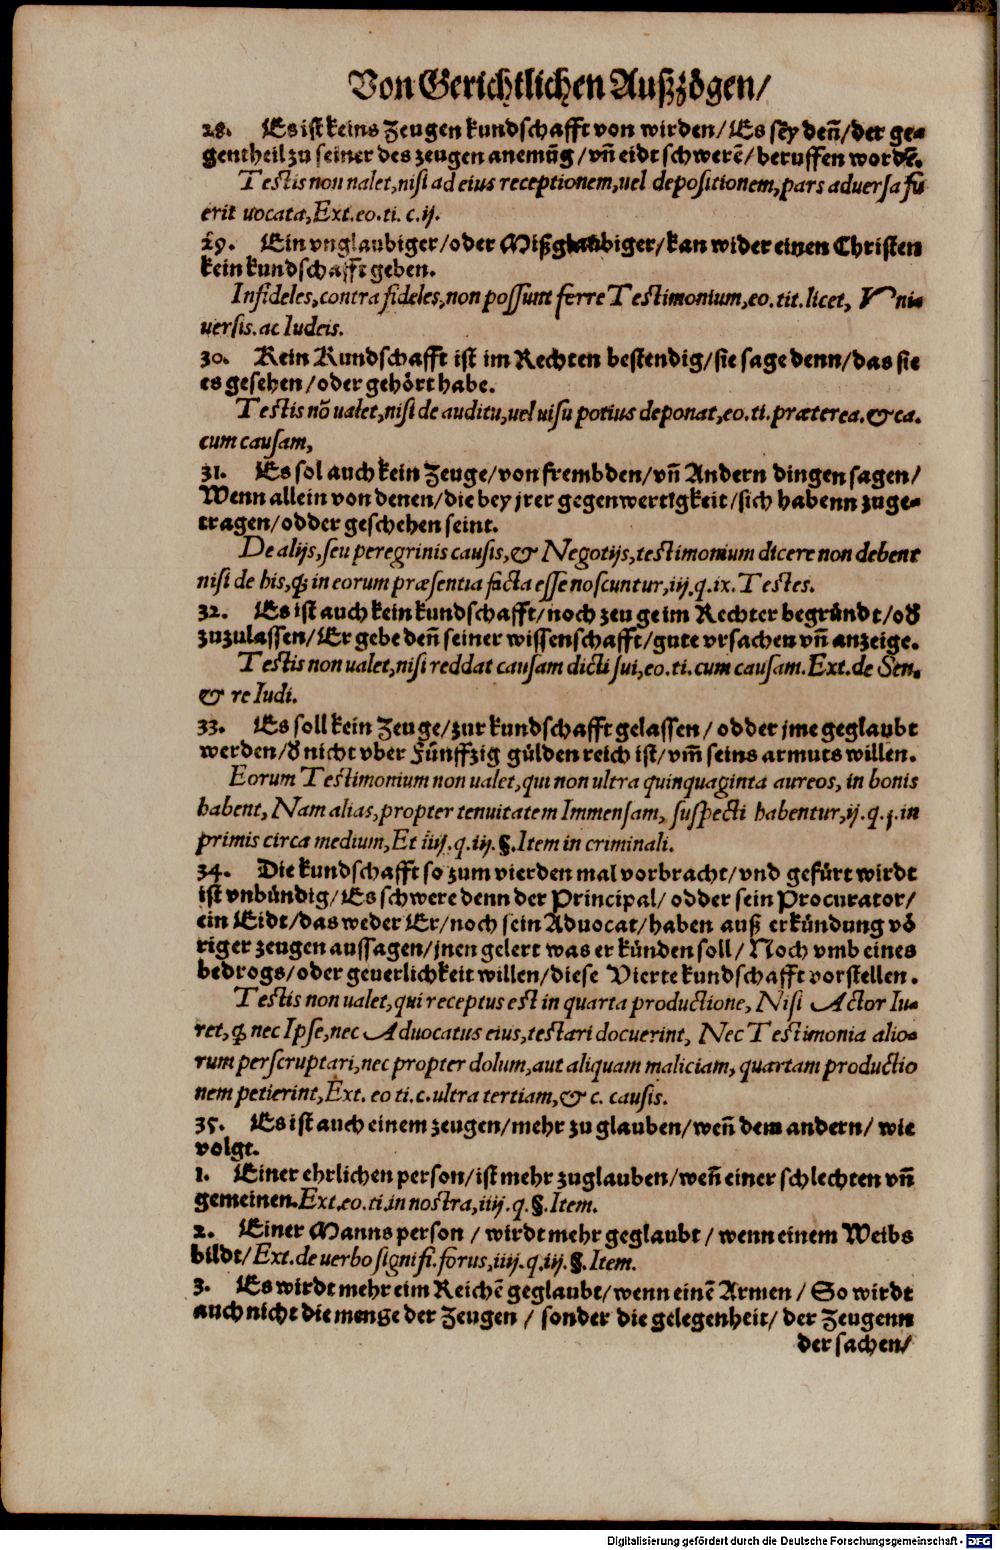 Von Gerichtlichen Außzögen/
28. Es ist keins Zeugen kundschafft von wirden/ Es sey deñ/ der ge⸗
gentheil zu seiner des zeugen anemũg/ vñ eidt schwerẽ/ beruffen wordẽ.
Testis non ualet, nisi ad eius receptionem, uel depositionem, pars aduersa fu
erit uocata, Ext. eo. ti. c. ij.
29. Ein vnglaubiger/ oder Mißglaubiger/ kan wider einen Christen
kein kundschafft geben.
Infideles, contra fideles, non possunt ferre Testimonium, eo. tit. licet, Vni⸗
uersis. ac Iudeis.
30. Kein Kundschafft ist im Rechten bestendig/ sie sage denn/ das sie
es gesehen/ oder gehört habe.
Testis nõ ualet, nisi de auditu, uel uisu potius deponat, eo. ti. præterea. & ca.
cum causam,
31. Es sol auch kein Zeuge/ von frembden/ vñ Andern dingen sagen/
Wenn allein von denen/ die bey jrer gegenwertigkeit/ sich habenn zuge⸗
tragen/ odder geschehen seint.
De alijs, seu peregrinis causis, & Negotijs, testimonium dicere non debent
nisi de his, ꝗ in eorum præsentia facta esse noscuntur, iij. q. ix. Testes.
32. Es ist auch kein kundschafft/ noch zeuge im Rechter begründt/ oð
zuzulassen/ Er gebe deñ seiner wissenschafft/ gute vrsachen vñ anzeige.
Testis non ualet, nisi reddat causam dicti sui, eo. ti. cum causam. Ext. de Sen.
& re Iudi.
33. Es soll kein Zeuge/ zur kundschafft gelassen/ odder jme geglaubt
werden/ ð nicht vber Fünffzig gülden reich ist/ vm̃ seins armuts willen.
Eorum Testimonium non ualet, qui non ultra quinquaginta aureos, in bonis
habent, Nam alias, propter tenuitatem Immensam, suspecti habentur, ij. q. j. in
primis circa medium, Et iiij. q. iij. §. Item in criminali.
34. Die kundschafft so zum vierden mal vorbracht/ vnd gefürt wirdt
ist vnbündig/ Es schwere denn der Principal/ odder sein Procurator/
ein Eidt/ das weder Er/ noch sein Aduocat/ haben auß erkündung vö
riger zeugen aussagen/ jnen gelert was er künden soll/ Noch vmb eines
bedrogs/ oder geuerlichkeit willen/ diese Vierte kundschafft vorstellen.
Testis non ualet, qui receptus est in quarta productione, Nisi Actor Iu⸗
ret, ꝗ nec Ipse, nec Aduocatus eius, testari docuerint, Nec Testimonia alio⸗
rum perscruptari, nec propter dolum, aut aliquam maliciam, quartam productio
nem petierint, Ext. eo ti. c. ultra tertiam, & c. causis.
35. Es ist auch einem zeugen/ mehr zu glauben/ weñ dem andern/ wie
volgt.
1. Einer ehrlichen person/ ist mehr zuglauben/ weñ einer schlechten vñ
gemeinen. Ext. eo. ti. in nostra, iiij. q. §. Item.
2. Einer Manns person/ wirdt mehr geglaubt/ wenn einem Weibs
bildt/ Ext. de uerbo signifi. forus, iiij. q. iij. §. Item.
3. Es wirdt mehr eim Reichẽ geglaubt/ wenn einẽ Armen/ So wirdt
auch nicht die menge der Zeugen/ sonder die gelegenheit/ der Zeugenn
der sachen/
Digitalisierung gefördert durch die Deutsche Forschungsgemeinschaft - DFG